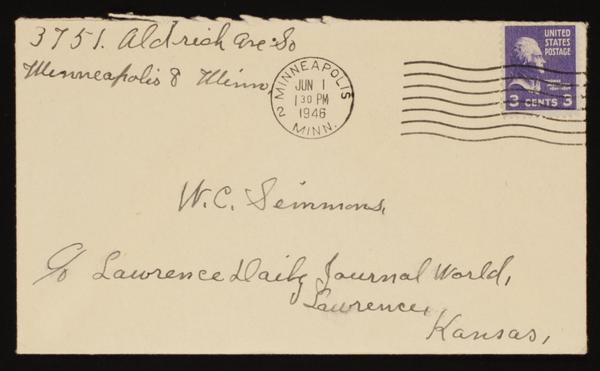 3751. Aldrich Ave. So
Minneapolis 8 Minn.
MINNEAPOLIS
JUN 1
1 30 PM
1946
2 MINN.
UNITED
STATES
POSTAGE
3 CENTS 3
W.C. Simmons,
c/o Lawrence Daily Journal World,
Lawrence,
Kansas,